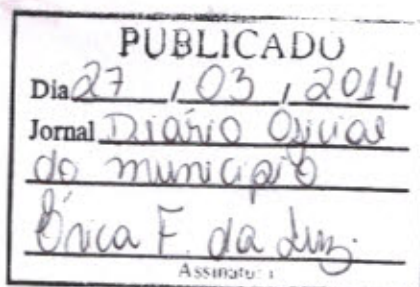 PUBLICADO
Dia 27 / 03 / 2014
Jornal Diário Oficial
do município
Érica F. da Luz.
Assinatura